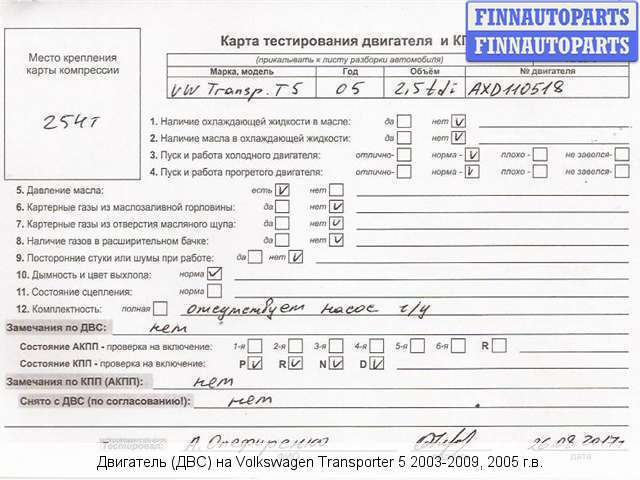 FINNAUTOPARTS
FINNAUTOPARTS
Место крепления
карты компрессии
254т
Карта тестирования двигателя и КП
(прикалывать к листу разборки автомобиля)
Марка, модель Год Объём № двигателя
VW Transp. T5 05 2,5 tdi AXD110518
1. Наличие охлаждающей жидкости в масле: да нет - V
2. Наличие масла в охлаждающей жидкости: да нет - V
3. Пуск и работа холодного двигателя: отлично- норма - V плохо - не завелся-
4. Пуск и работа прогретого двигателя: отлично- норма - V плохо - не завелся-
5. Давление масла: есть V нет
6. Картерные газы из маслозаливной горловины: да нет V
7. Картерные газы из отверстия масляного щупа: да нет V
8. Наличие газов в расширительном бачке: да нет V
9. Посторонние стуки или шумы при работе: да нет V
10. Дымность и цвет выхлопа: норма V
11. Состояние сцепления: норма
12. Комплектность: полная отсутствует насос г/у
Замечания по ДВС: нет
Состояние АКПП - проверка на включение: 1-я 2-я 3-я 4-я 5-я 6-я R
Состояние КПП - проверка на включение: P V R V N V D V
Замечания по КПП (АКПП): нет
Снято с ДВС (по согласованию!): нет
Тестировал: А. 26.09.2017г
дата
Двигатель (ДВС) на Volkswagen Transporter 5 2003-2009, 2005 г.в.